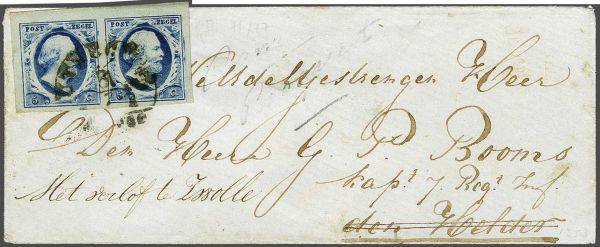 POST ZEGEL POST ZEGEL
5 C 5 C
WelEdelgestrengen Heer
Den Heere G. P. Booms
Met verlof te Zwolle
kapt 7 Regt Inf.
den Helder